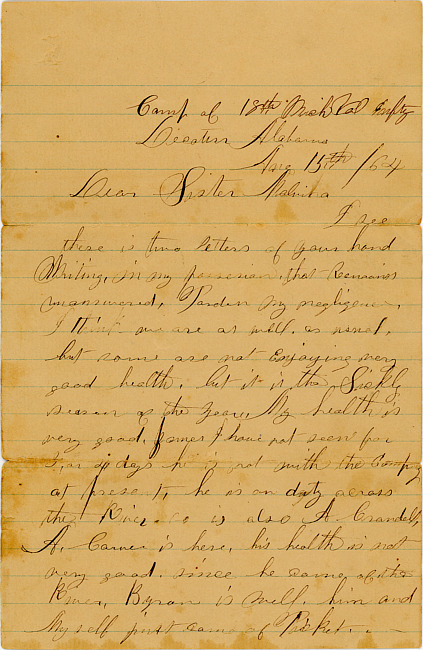 Camp of 18th Mich Vol Infty
Decatur Alabama
Aug 15th /64
Dear Sister Malvina
I see
there is two letters of your hand
Writing, in my possession, that remains
unanswered, Pardon my negligence,
I think we are as well, as usual,
but some are not Enjoying very
good health, but it is the Sickly
season of the Year, My health is
very good, I have not seen for
days he is not with the Company
at present, he is on duty across
the River, so is also A. Crandell,
A. Carver is here, his health is not
very good, since he came of the
River, Byron is well, him and
Myself just came of Picket.